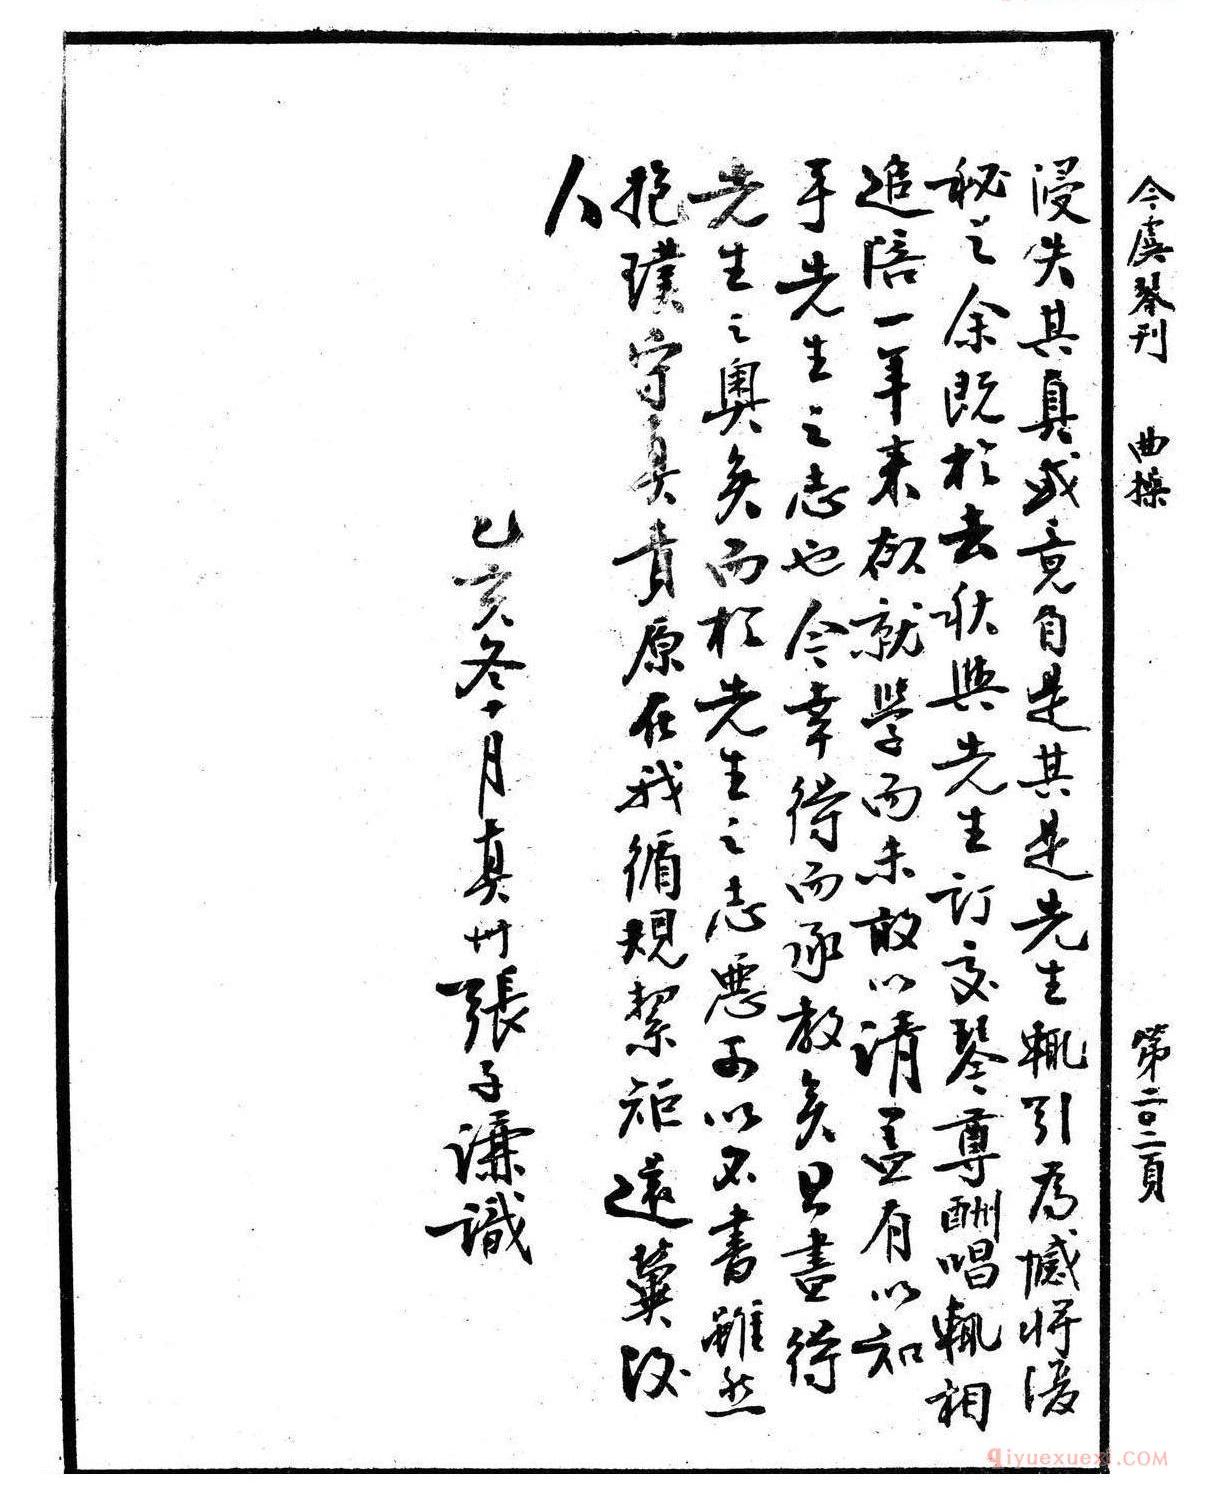 今虞琴刊 曲操 第二〇二頁
浸失其真或竟自是其是先生輒引為憾將復
秘之余既於去秋與先生訂交琴尊酬唱輒相
追陪一年来欲就學而未敢以請蓋有以知
乎先生之志也今幸得而承教矣且盡得
先生之奧矣而於先生之志惡可以不書雖然
抱璞守真責原在我循規絜矩還冀後
人
乙亥冬十月真州張子謙識
qiyuexuexi.COM